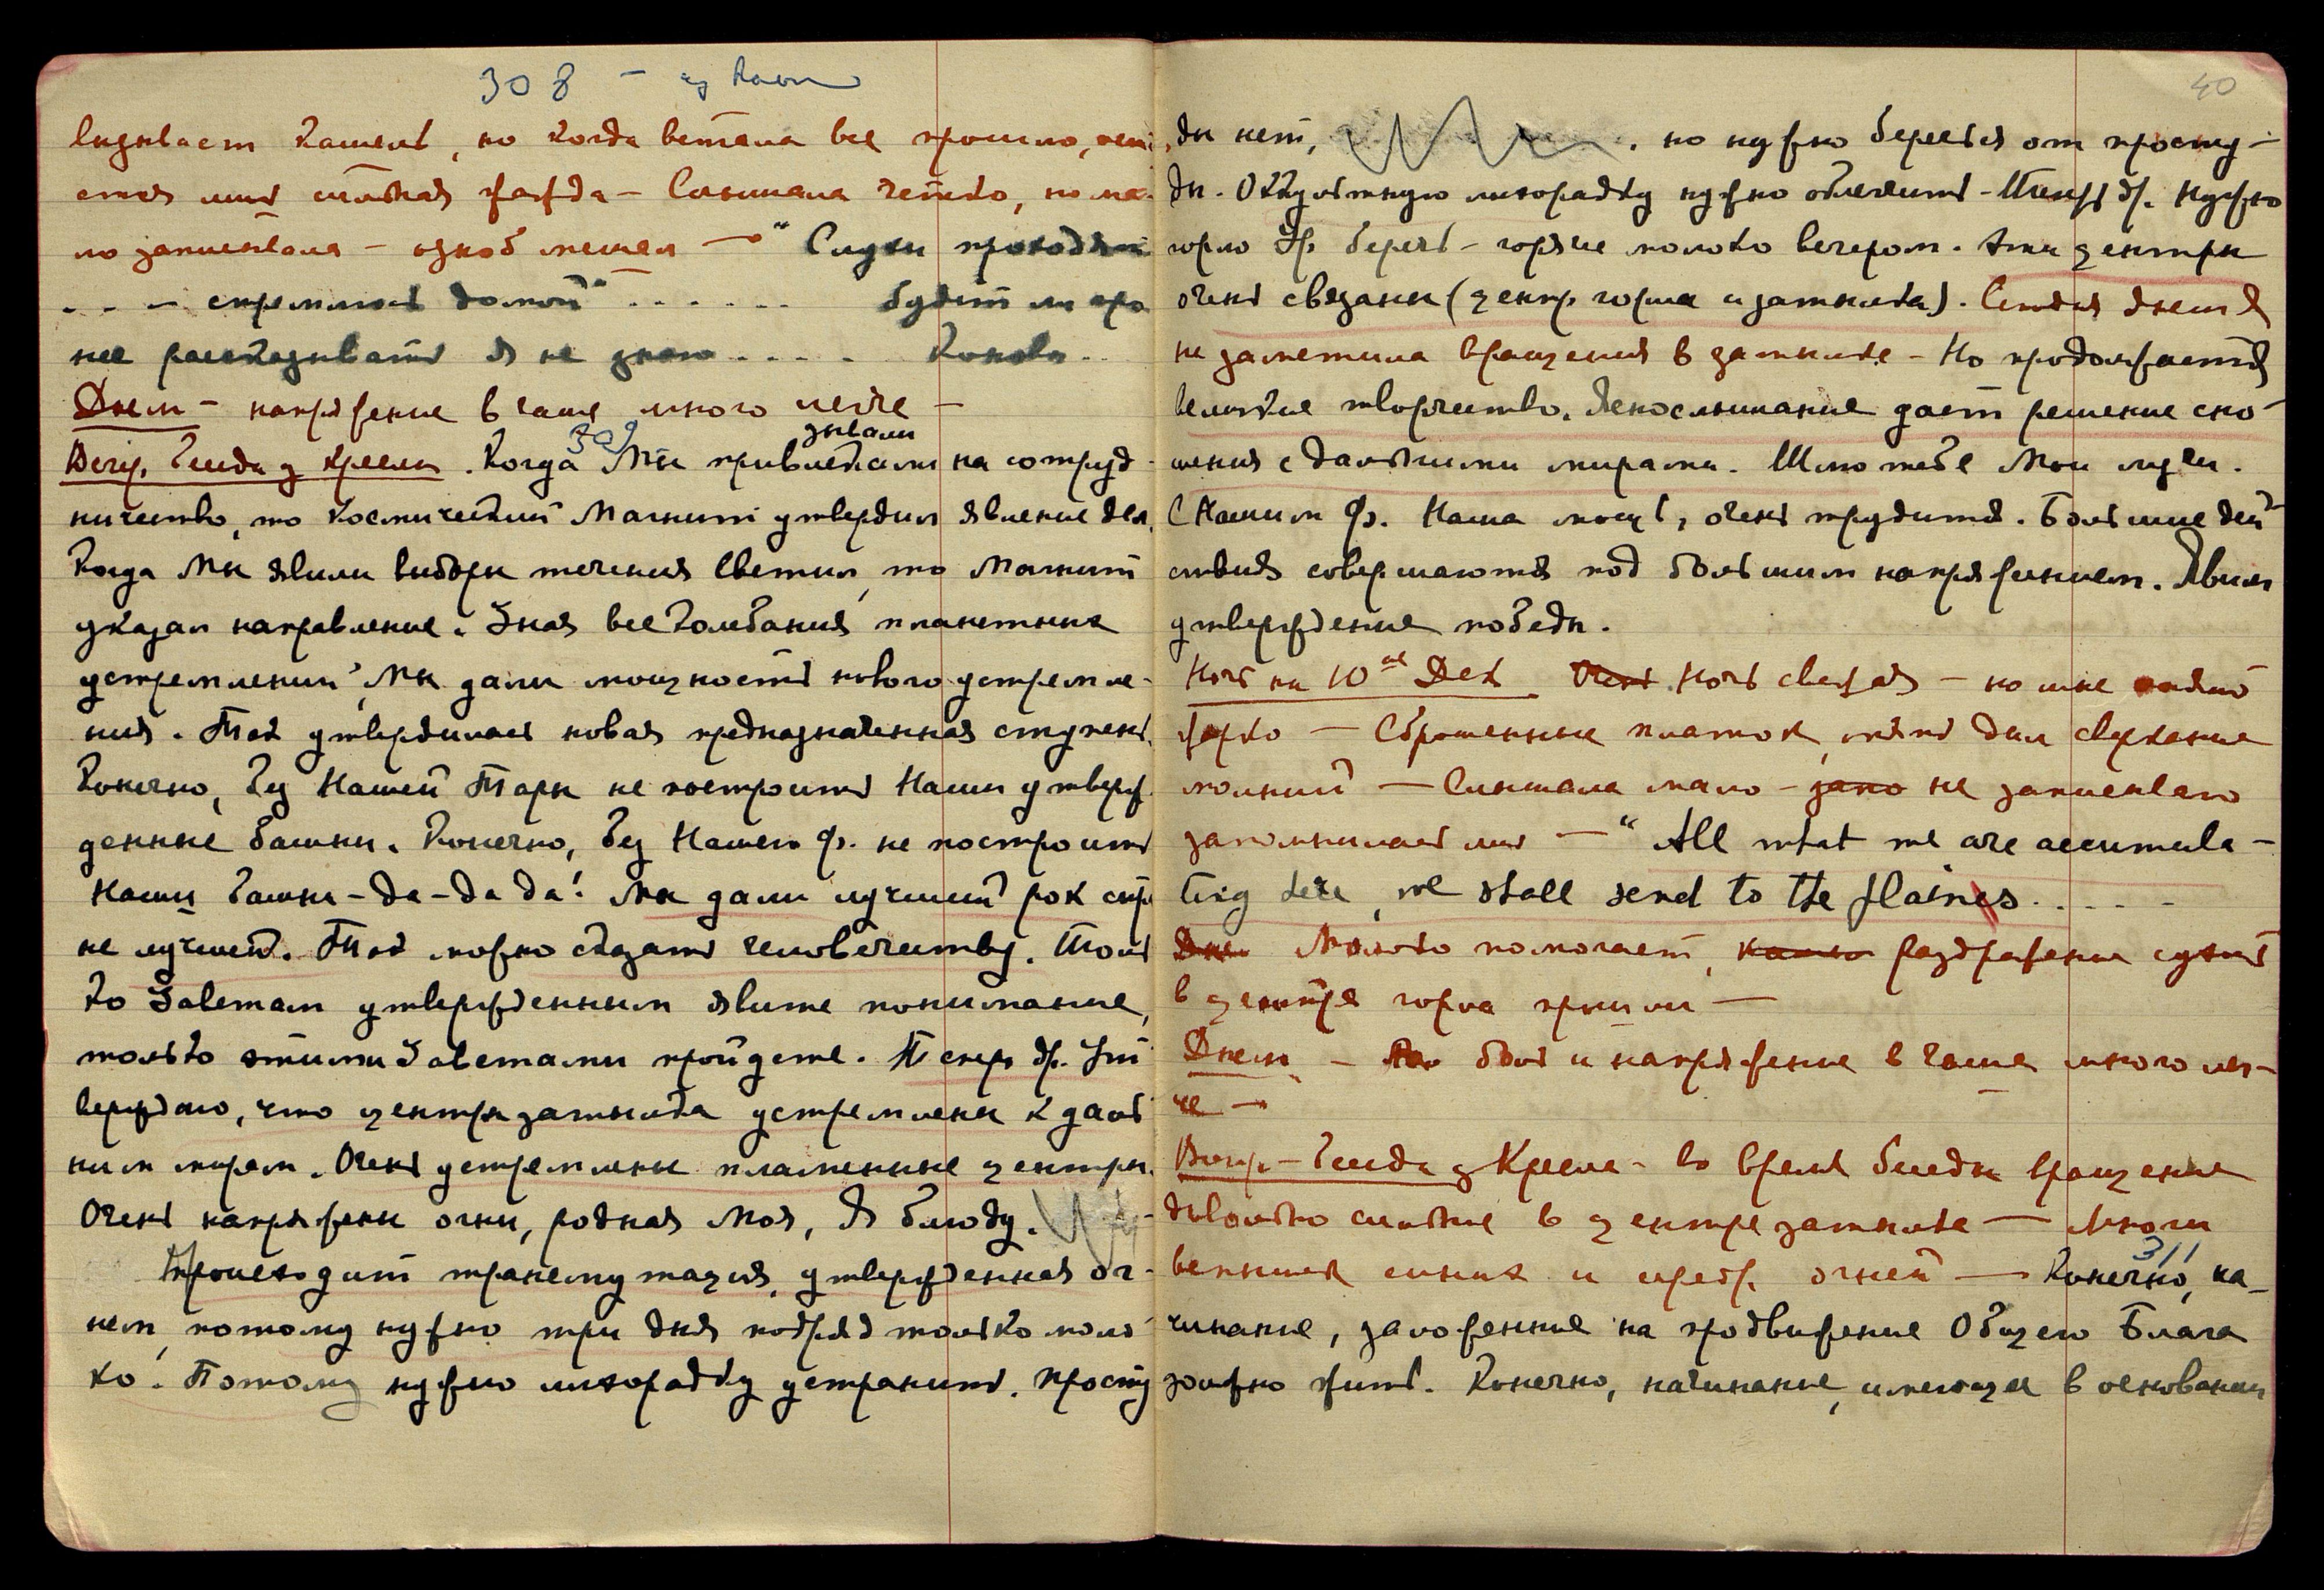 308 –
вызывает кашель, но когда встала все прошло,
лишь сильная жажда – Слышала четко, но ма-
ло записывала – озноб мешал – "Слухи
. . – стремились домой" . . . . . . будет ли
нее рассказывать я не знаю . . . .
Днем – напряжение в чаше много легче –
309 зывали
Вечер. Беседа у кресла. Когда Мы привлекали на сотруд-
ничество, то Космический Магнит утвердил явление дел.
Когда Мы явили выборы течения Светил, то Магнит
указал направление. Зная все колебания планетных
устремлений, Мы дали мощность нового устремле-
ния. Так утвердилась новая предназначенная ступень.
Конечно, без Нашей Тары не построить Наши утверж-
денные башни. Конечно, без Нашего Ф. не построить
Наши башни – да – да да! Мы дали лучший рок
не лучшей. Так можно сказать человечеству. Толь
ко Заветам утвержденным явите понимание,
только этими Заветами пройдете. Теперь др. Ут
верждаю, что центры затылка устремлены к даль
ним мирам. Очень устремлены пламенные центры.
Очень напряжены огни, родная Моя, Я блюду.
Происходит трансмутация, утвержденная ог-
нем, потому нужно три дня подряд только моло-
ко. Потому нужно лихорадку устранить. Просту
40
ды нет, но нужно беречься от просту-
ды. Оккультную лихорадку нужно облегчить – др. Нужно
горло др. беречь – горячее молоко вечером. Эти центры
очень связаны (центр горла и затылка). Сегодня днем я
не заметила вращения в затылке – Но продолжается
великое творчество. Яснослышание дает решение сно-
шения с дальними мирами. Шлю тебе Мои лучи.
С Нашим Ф. Наша мощь, очень трудится. Большие дей-
ствия совершаются под большим напряжением. Явим
утверждение победы.
Ночь на 10ое Дек Очень Ночь свежая – но мне
жарко – Сброшенный платок опять дал сверкание
молний – Слышала мало – не записывала
запомнилась лишь – "All what we are accumula-
ting here, we shall send to the plaines . . . . –
Днем Молоко помогает, раздражение
в центре горла прошли –
Днем – боль и напряжение в чаше много лег-
че –
Вечер – Беседа у Кресла – во время беседы вращение
довольно сильное в центре затылка – Много
вспышек синих и серебр. огней – Конечно, на-
311
чинание, заложенное на продвижение Общего Блага
должно жить. Конечно, начинание, имеющее в основании